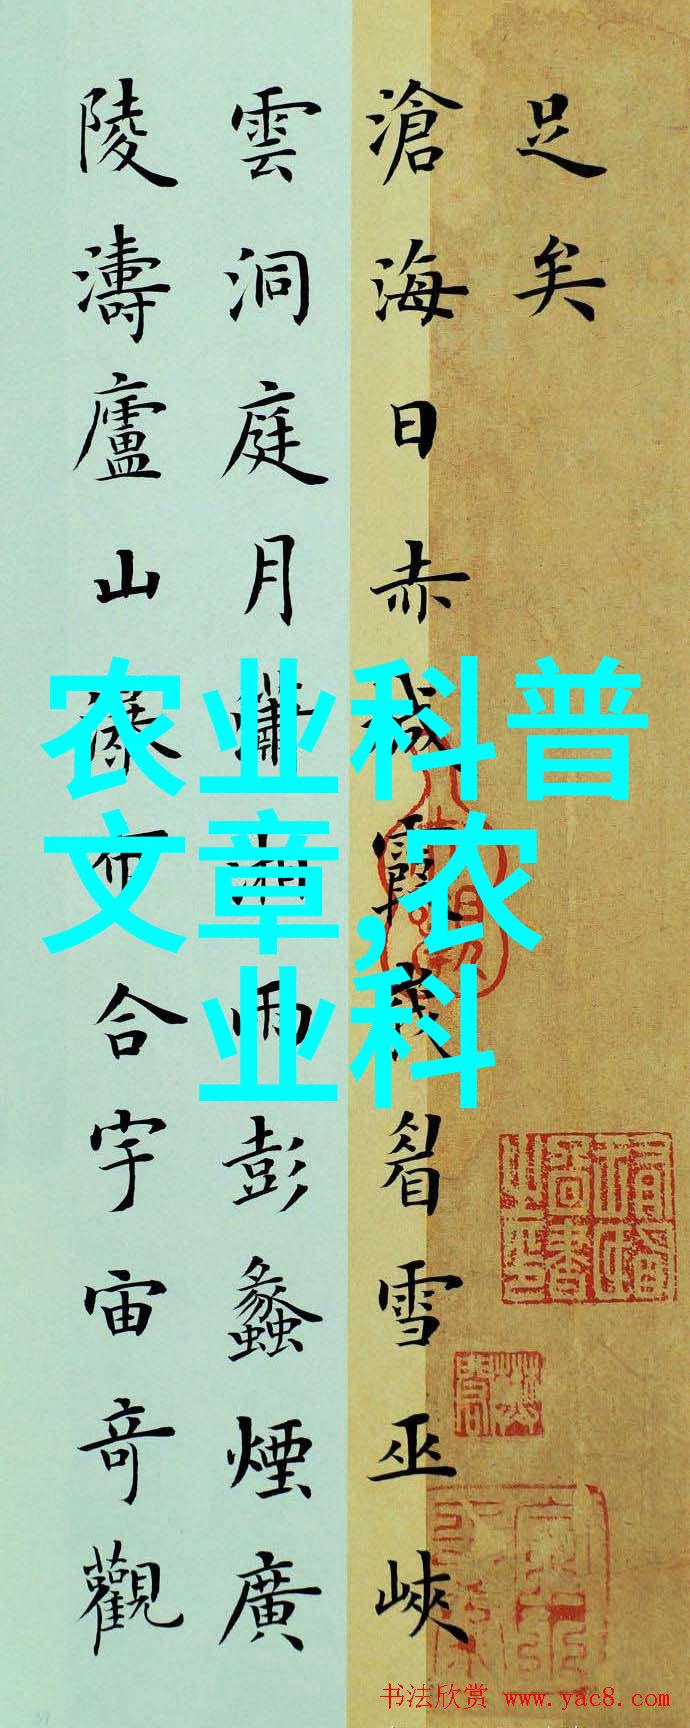 足矣
滄海日赤城霞峩睂雪巫峽
雲洞庭月瀟湘雨彭蠡煙廣
陵濤廬山瀑布合宇宙奇觀
农业科普
文章,农
业科
书法欣赏 www.yac8.com